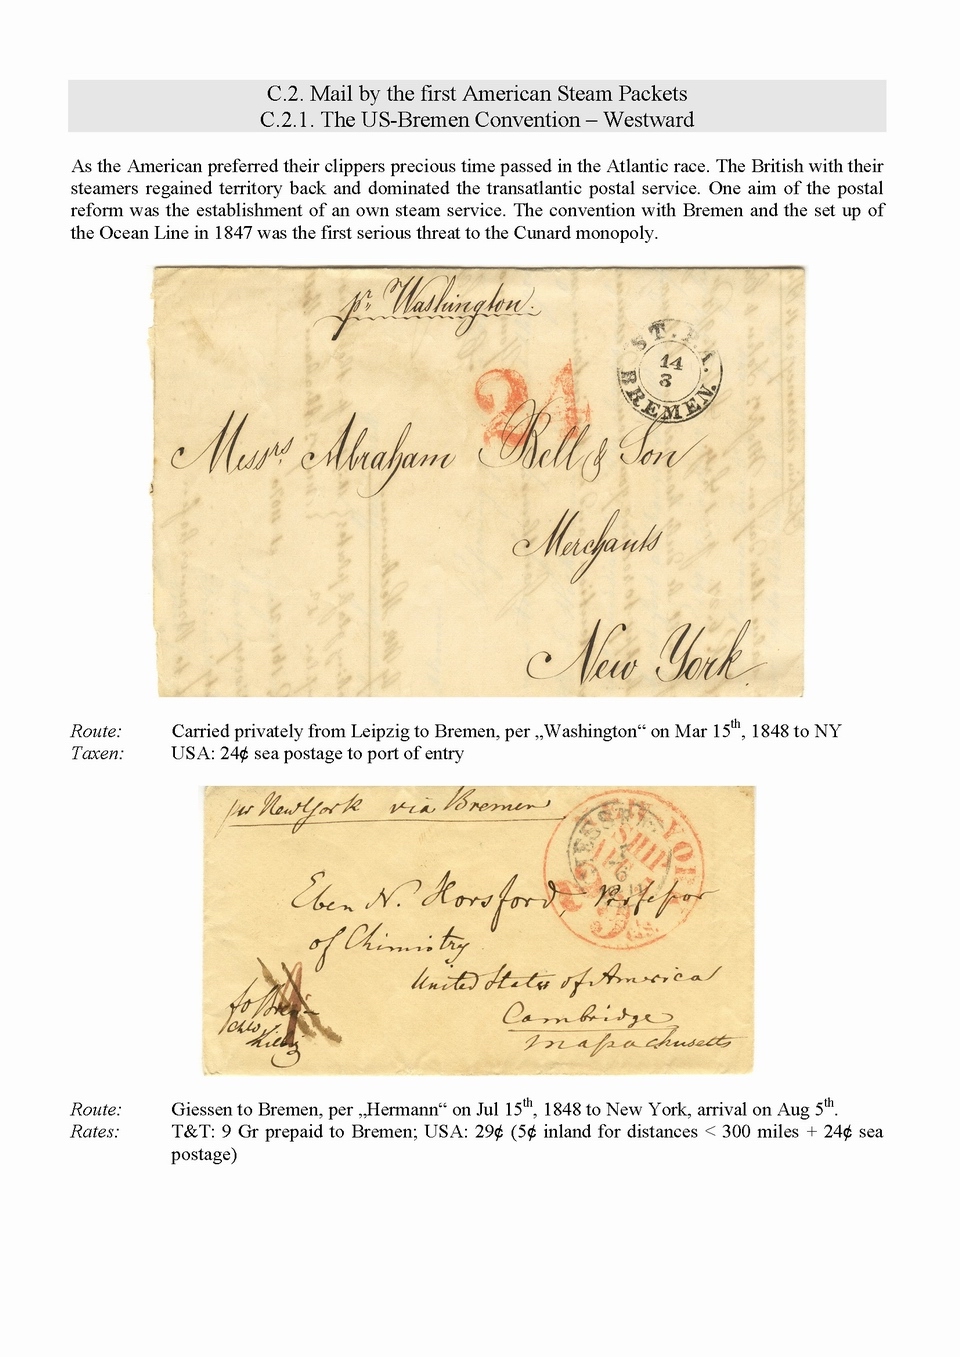 C.2. Mail by the first American Steam Packets
C.2.1. The US-Bremen Convention – Westward
As the American preferred their clippers precious time passed in the Atlantic race. The British with their
steamers regained territory back and dominated the transatlantic postal service. One aim of the postal
reform was the establishment of an own steam service. The convention with Bremen and the set up of
the Ocean Line in 1847 was the first serious threat to the Cunard monopoly.
pr Washington.
ST. P. A.
14
3
BREMEN.
24
Messrs. Abraham Bell & Son
Merchants
New York.
Route: Carried privately from Leipzig to Bremen, per „Washington“ on Mar 15th, 1848 to NY
Taxen: USA: 24¢ sea postage to port of entry
per New York via Bremen
NEW YORK
SHIP
Eben N. Horsford, Professor
of Chimistry
United States of America
Cambridge
Massachusetts
Route: Giessen to Bremen, per „Hermann“ on Jul 15th, 1848 to New York, arrival on Aug 5th.
Rates: T&T: 9 Gr prepaid to Bremen; USA: 29¢ (5¢ inland for distances < 300 miles + 24¢ sea
postage)